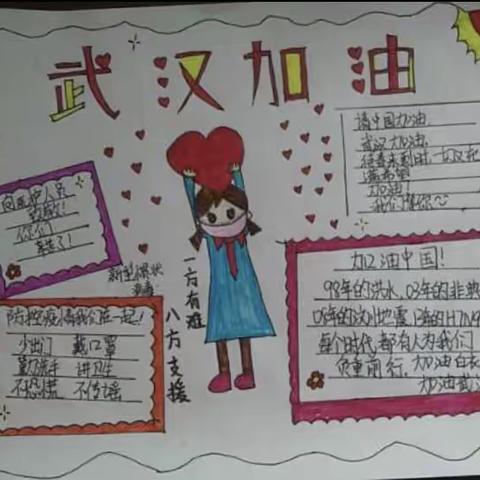 武汉加油
请中国加油
武汉加油
满希望
加油!
我们撑你～
向医护人员
致敬!
你们
辛苦了!
新型冠状
病毒
一方有难
八方支援
防控疫情我们在一起!
少出门 戴口罩
勤洗手 讲卫生
不恐慌 不传谣
加油中国!
98年的洪水,03年的非典
08年的汶川地震 13年的H7N9
每个时代,都有人为我们
负重前行,加油白衣
加油武汉